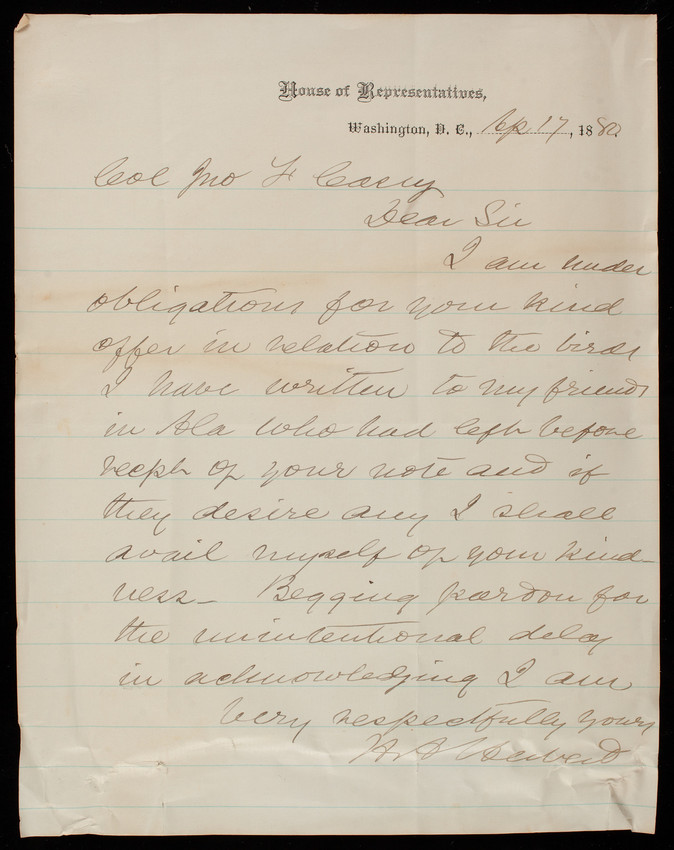 House of Representatives,
Washington, D. C., Ap 17, 1880.
Col Casey
Dear Sir
I am under
obligations for your kind
offer in relation to the birds
I have written to my friends
in Ala who had left before
recpt of your note and if
they desire any I shall
avail myself of your kind-
ness - Begging pardon for
the unintentional delay
in acknowledging I am
Very respectfully yours
H A Herbert